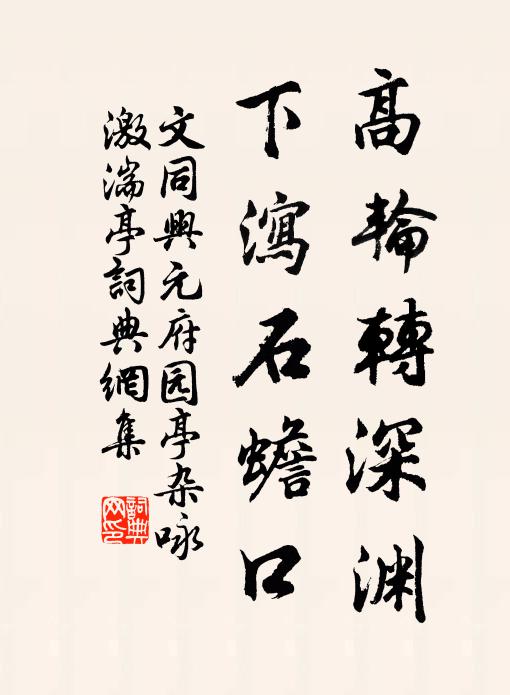 高輪轉深渊
下瀉石蟾口
文同興元府园亭杂咏
激湍亭詞典網集
詞典
网印